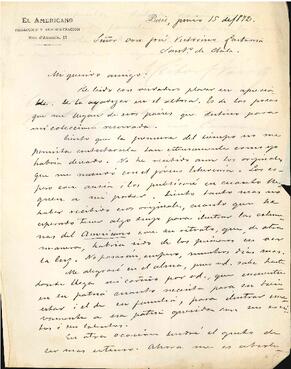 EL AMERICANO
REDACCION Y ADMINISTRACION
Paris, junio 15 de 1872.
Señor don José Victorino Lastarria
Mi querido amigo:
He leido con verdadero placer en aprecia
ble. Le lo agradezco en el alma. Es de las pocas
que me llegan de esos paises que
mi coleccion reservada.
Siento que la premura del tiempo no me
permita contestarle tan estensamente como yo
habria deseado. No he recibido aun los orijinales
que me anuncia en el
pero con ansia i los publicaré en cuanto lle
guen a mi poder. Siento tanto mas no
haber recibido esos orijinales, cuanto que ha
tener algo suyo para ilustrar las colum
nas del Americano con su retrato, que de otra
manera, habria sido de los primeros en ver
la luz. No pasarán, empero, muchos dias mas.
Me alegraré en el alma, pues sabe hasta
donde llega mi cariño por ud., que encuentre
en su patria cuanto necesita para su bien
estar i el de su familia, para ilustrar
a esa patria querida con sus escri
tos i sus talentos.
En otra ocasion tendré el gusto de
ser mas estenso. Ahora me es